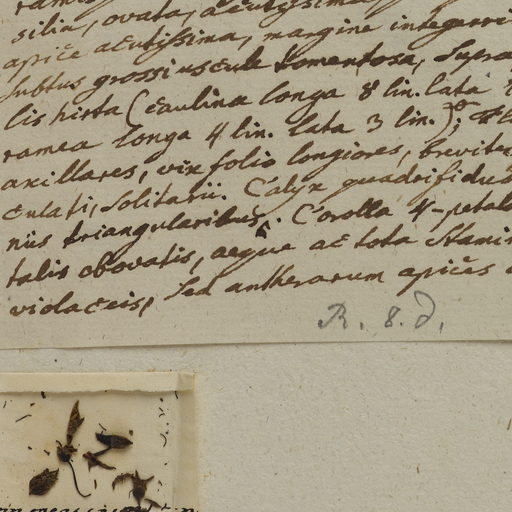 silia, ovata, acutissima,
apice acutissima, margine integerri
subtus grossiuscule tomentosa, supra
lis hirta (caulina longa 8 lin. lata
ramea longa 4 lin. lata 3 lin.);
axillares, vix folio longiores, brevite
culati, solitarii. Calyx quadrifidus
niis triangularibus. Corolla 4-petal
talis obovatis, aeque ac tota Stami
violaceis, sed antherarum apices
R. 8. d.